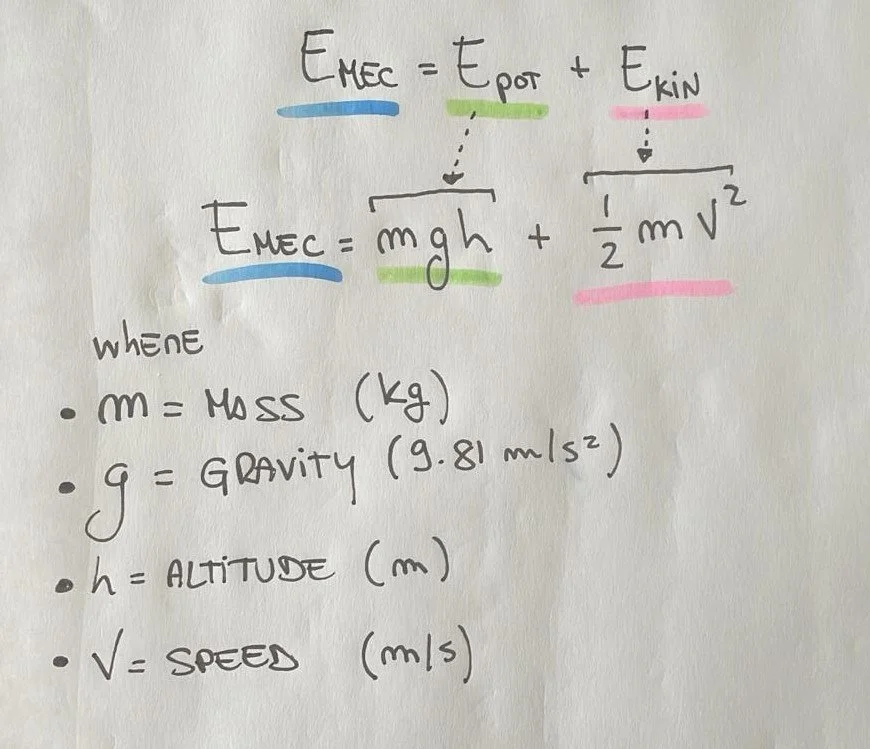 E MEC = E POT + E KiN
E MEC = m g h + 1/2 m v²
where
• m = MASS (kg)
• g = GRAViTY (9.81 m/s²)
• h = ALTiTUDE (m)
• V = SPEED (m/s)